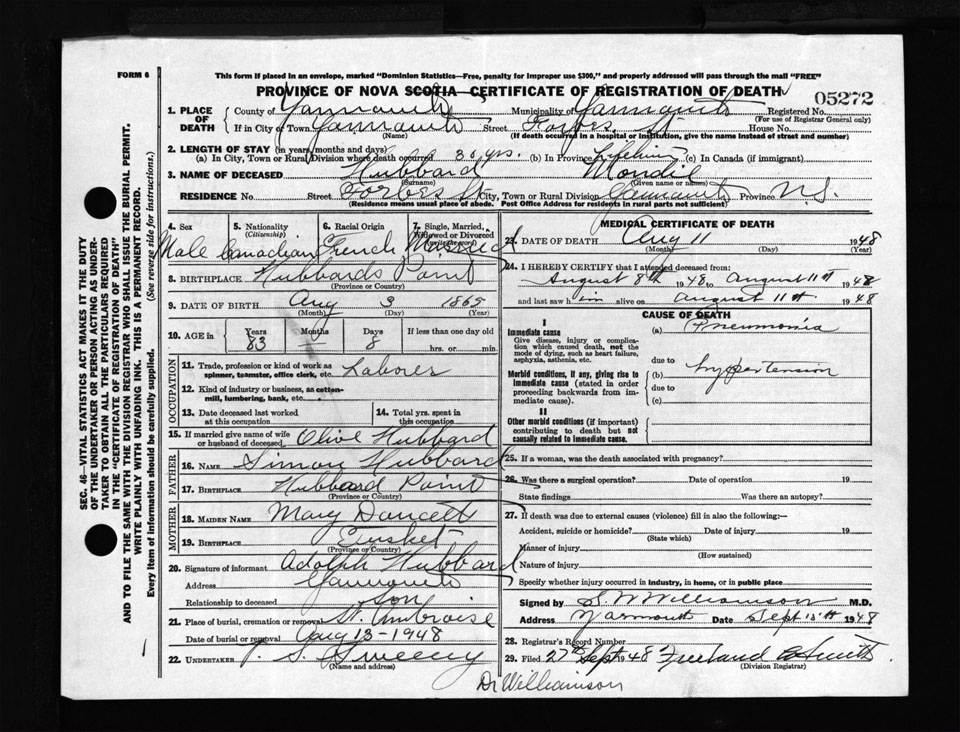 FORM 6
This form if placed in an envelope, marked "Dominion Statistics—Free, penalty for improper use $300," and properly addressed will pass through the mail "FREE"
PROVINCE OF NOVA SCOTIA—CERTIFICATE OF REGISTRATION OF DEATH
05272
1. PLACE OF DEATH County of Yarmouth Municipality of Yarmouth Registered No.
(For use of Registrar General only)
If in City or Town Yarmouth Street Forbes St House No.
(Name) (If death occurred in a hospital or institution, give the name instead of street and number)
2. LENGTH OF STAY (in years, months and days)
(a) In City, Town or Rural Division where death occurred 30 yrs. (b) In Province Lifetime (c) In Canada (if immigrant)
3. NAME OF DECEASED Hubbard Mondie
(Surname) (Given name or names)
RESIDENCE No. Street Forbes St City, Town or Rural Division Yarmouth Province N.S.
(Residence means usual place of abode. Post Office Address for residents in rural parts not sufficient)
4. Sex 5. Nationality (Citizenship) 6. Racial Origin 7. Single, Married, Widowed or Divorced (write the word)
Male Canadian French Married
8. BIRTHPLACE Hubbards Point
(Province or Country)
9. DATE OF BIRTH Aug 3 1865
(Month) (Day) (Year)
10. AGE in Years Months Days If less than one day old
83 — 8 hrs. or min.
OCCUPATION
11. Trade, profession or kind of work as spinner, teamster, office clerk, etc. Laborer
12. Kind of industry or business, as cotton-mill, lumbering, bank, etc.
13. Date deceased last worked at this occupation 14. Total yrs. spent in this occupation
15. If married give name of wife or husband of deceased Olive Hubbard
FATHER
16. NAME Simon Hubbard
17. BIRTHPLACE Hubbard Point
(Province or Country)
MOTHER
18. MAIDEN NAME Mary Doucett
19. BIRTHPLACE
(Province or Country)
20. Signature of informant Adolph Hubbard
Address Yarmouth
Relationship to deceased Son
21. Place of burial, cremation or removal St. Ambroise
Date of burial or removal Aug 13-1948
22. UNDERTAKER S. Sweeny
(Name and address)
MEDICAL CERTIFICATE OF DEATH
23. DATE OF DEATH Aug 11 1948
(Month) (Day)
24. I HEREBY CERTIFY that I attended deceased from:
August 8th 1948 to August 11th 1948
and last saw him alive on August 11th 1948
CAUSE OF DEATH
I
Immediate cause (a) Pneumonia
Give disease, injury or complication which caused death, not the mode of dying, such as heart failure, asphyxia, asthenia, etc.
due to
Morbid conditions, if any, giving rise to immediate cause (stated in order proceeding backwards from immediate cause). (b) hypertension
due to
(c)
II
Other morbid conditions (if important) contributing to death but not causally related to immediate cause.
25. If a woman, was the death associated with pregnancy?
26. Was there a surgical operation? Date of operation 19
State findings Was there an autopsy?
27. If death was due to external causes (violence) fill in also the following:—
Accident, suicide or homicide? Date of injury 19
(State which)
Manner of injury
(How sustained)
Nature of injury
Specify whether injury occurred in industry, in home, or in public place
Signed by S. W. Williamson M.D.
Address Yarmouth Date Sept 15th 1948
28. Registrar's Record Number
29. Filed 27th Sept 1948 Smith
(Division Registrar)
Dr Williamson
SEC. 46—VITAL STATISTICS ACT MAKES IT THE DUTY
OF THE UNDERTAKER OR PERSON ACTING AS UNDER-
TAKER TO OBTAIN ALL THE PARTICULARS REQUIRED
IN THE "CERTIFICATE OF REGISTRATION OF DEATH"
AND TO FILE THE SAME WITH THE DIVISION REGISTRAR WHO SHALL ISSUE THE BURIAL PERMIT.
WRITE PLAINLY WITH UNFADING INK. THIS IS A PERMANENT RECORD.
Every item of information should be carefully supplied. (See reverse side for instructions.)